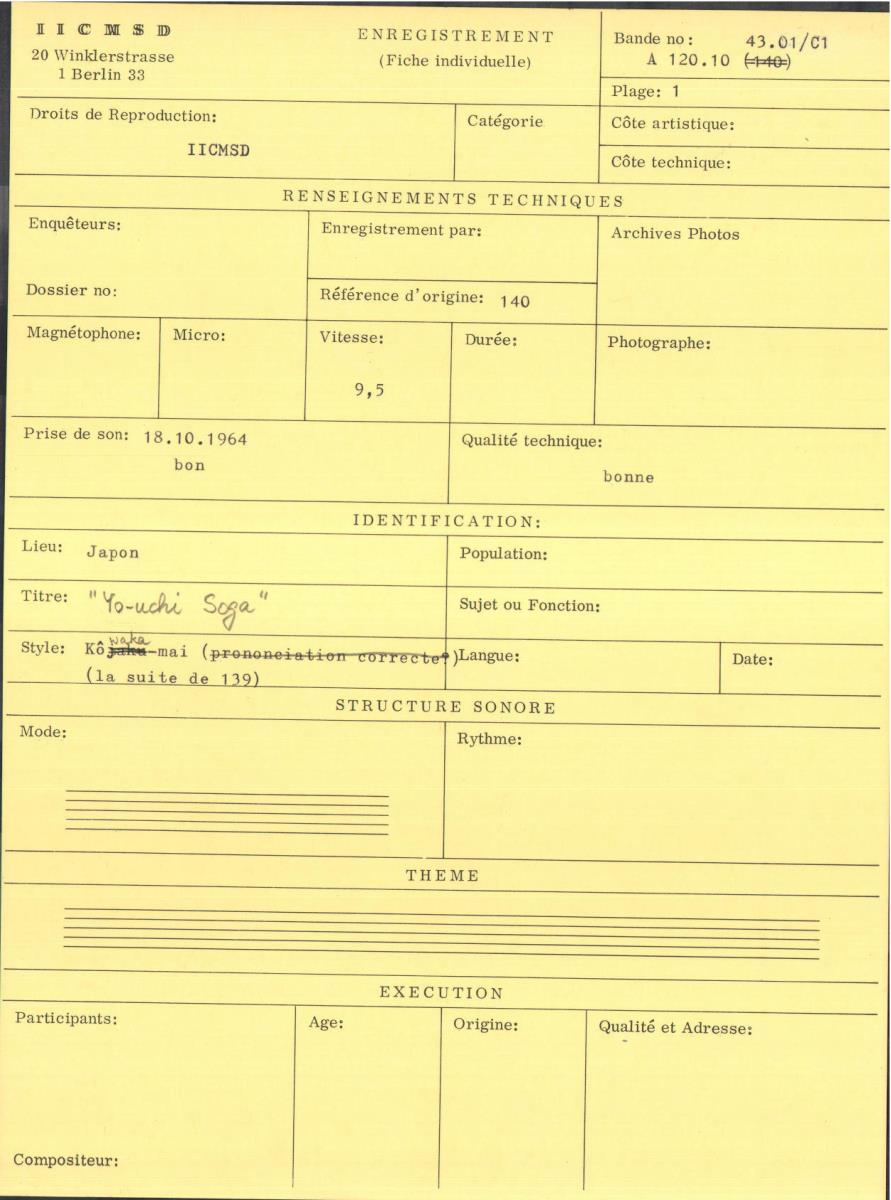 IICMSD
20 Winklerstrasse
1 Berlin 33
ENREGISTREMENT
(Fiche individuelle)
Bande no: 43.01/C1
A 120.10 (140)
Plage: 1
Droits de Reproduction:
IICMSD
Catégorie
Côte artistique:
Côte technique:
RENSEIGNEMENTS TECHNIQUES
Enquêteurs:
Dossier no:
Enregistrement par:
Référence d'origine: 140
Archives Photos
Magnétophone:
Micro:
Vitesse:
9,5
Durée:
Photographe:
Prise de son: 18.10.1964
bon
Qualité technique:
bonne
IDENTIFICATION:
Lieu: Japon
Population:
Titre: "Yo-uchi Soga"
Sujet ou Fonction:
Style: Kôwaka-mai (prononciation correcte?)
(la suite de 139)
Langue:
Date:
STRUCTURE SONORE
Mode:
Rythme:
THEME
EXECUTION
Participants:
Age:
Origine:
Qualité et Adresse:
Compositeur: